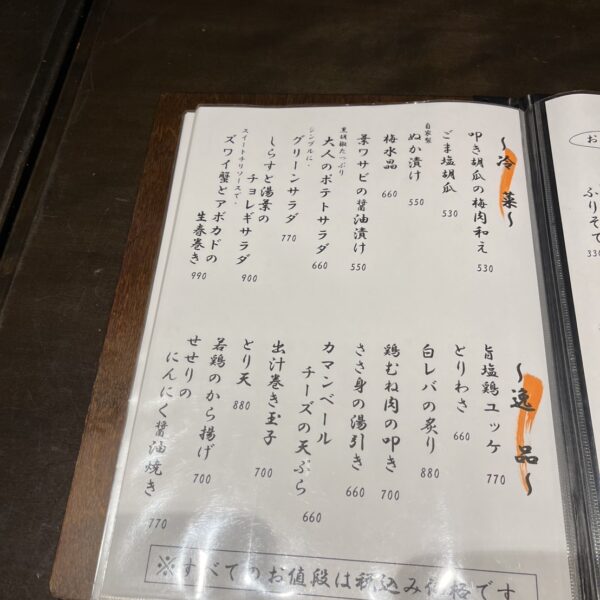 お
ふりそで
330
～冷菜～
叩き胡瓜の梅肉和え
530
ごま塩胡瓜
530
自家製
ぬか漬け
550
梅水晶
660
葉ワサビの醤油漬け
550
黒胡椒たっぷり
大人のポテトサラダ
660
シンプルに・
グリーンサラダ
770
しらすと湯葉の
チョレギサラダ
900
スイートチリソースで・
ズワイ蟹とアボカドの
生春巻き
990
～逸品～
旨塩鶏ユッケ
770
とりわさ
660
白レバの炙り
880
鶏むね肉の叩き
700
ささ身の湯引き
660
カマンベール
チーズの天ぷら
660
出汁巻き玉子
700
とり天
880
若鶏のから揚げ
700
せせりの
にんにく醤油焼き
770
※すべてのお値段は税込み価格です